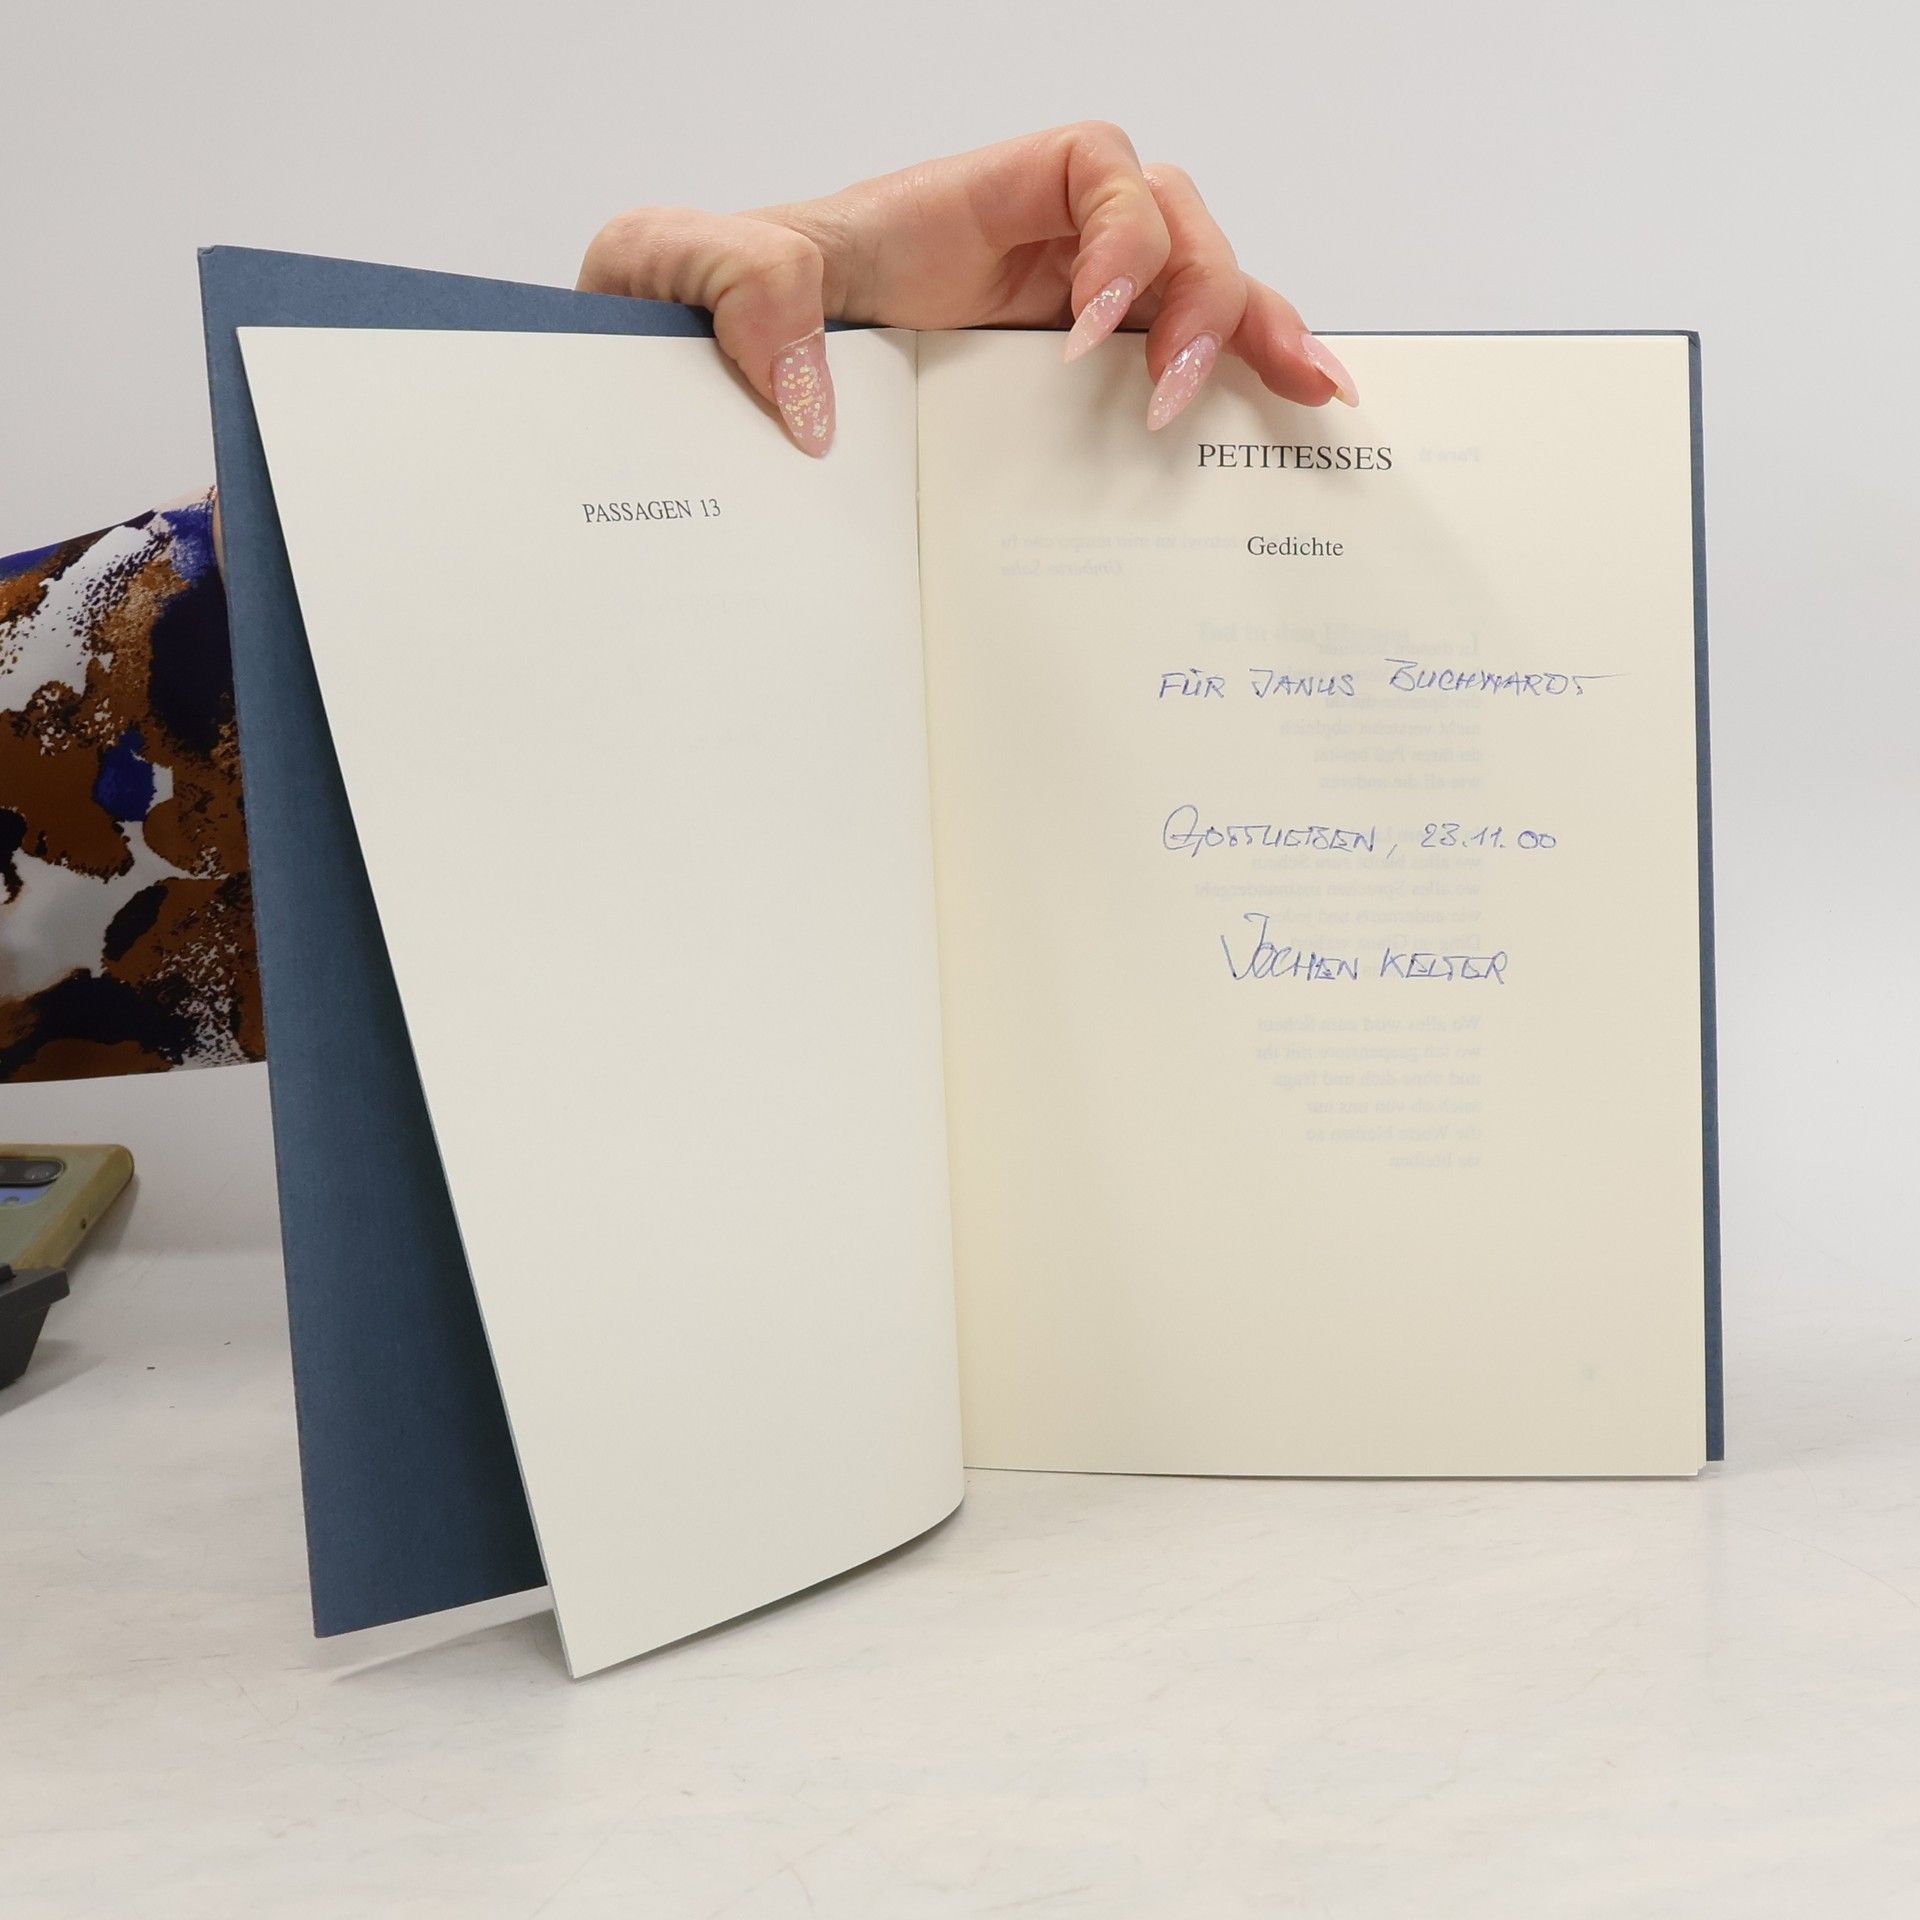 PASSAGEN 13
PETITESSES
Gedichte
FÜR JANUS BUCHWARDT
GOTTLIEBEN, 23.11.00
JOCHEN KELTER